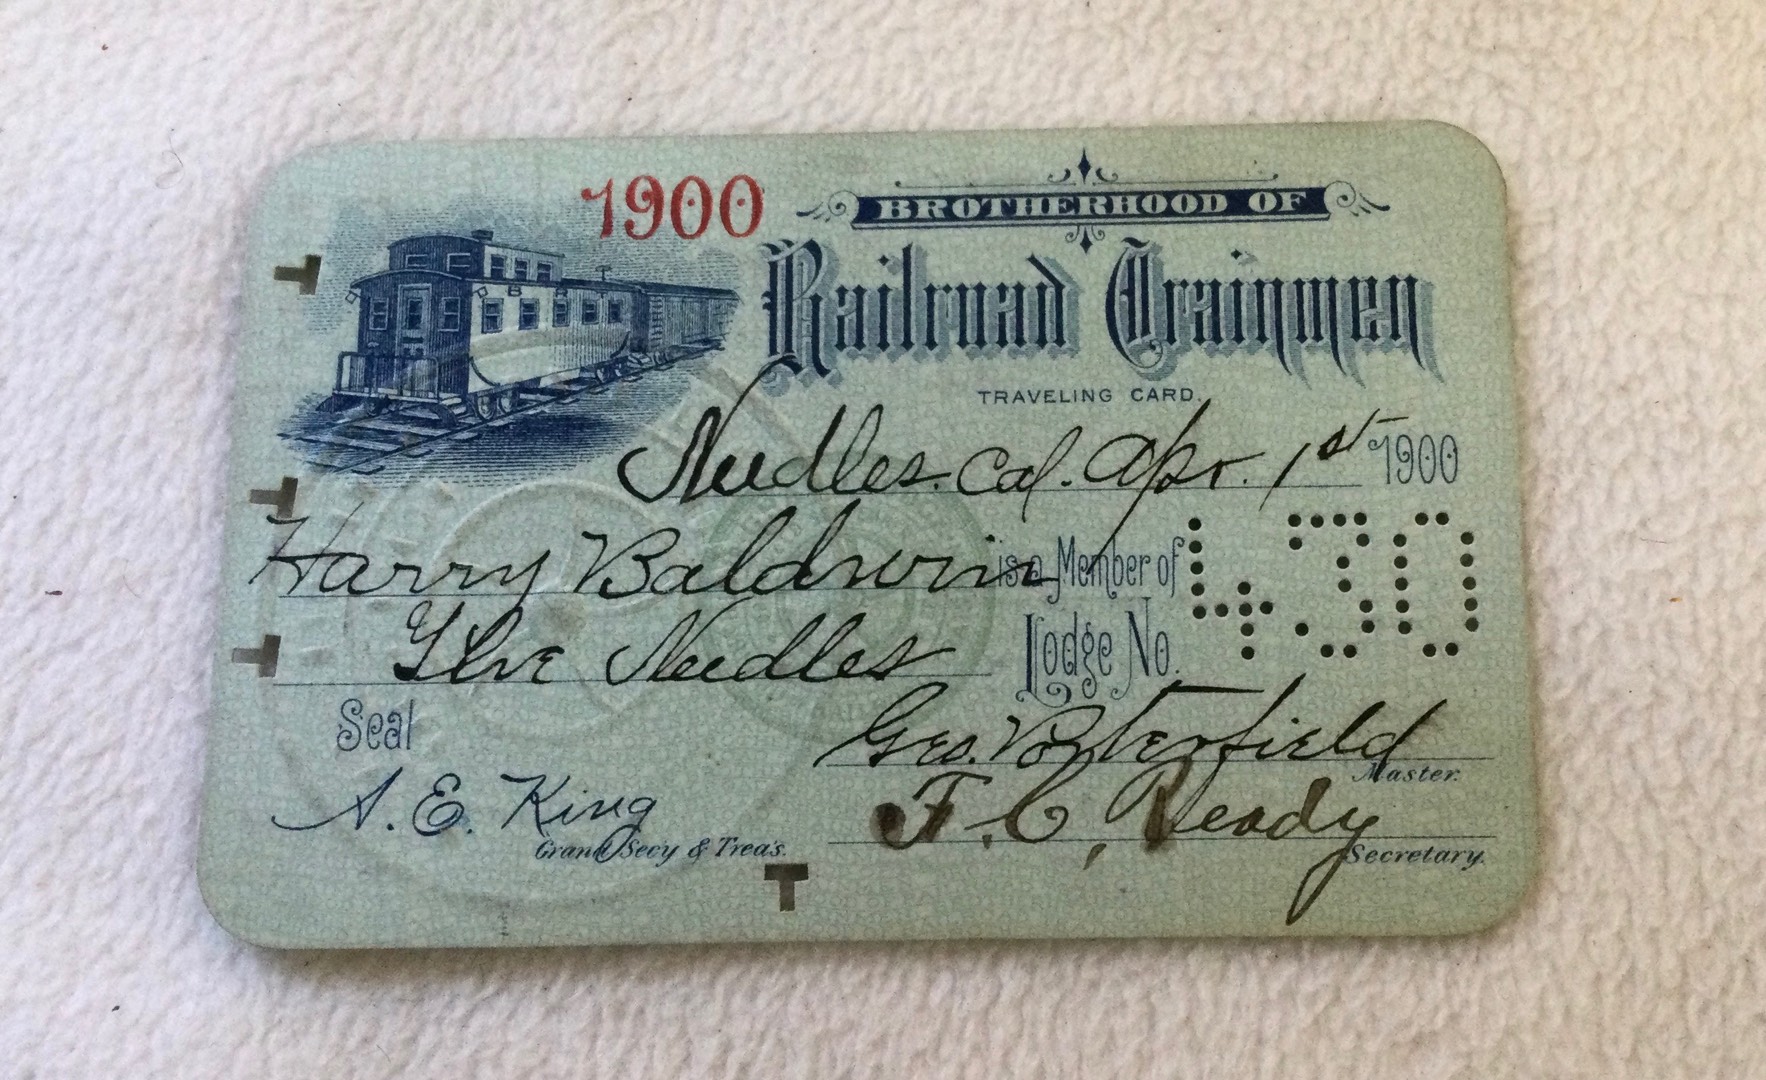 1900
BROTHERHOOD OF
Railroad Trainmen
TRAVELING CARD.
Needles. Cal. Apr. 1st 1900
Harry Baldwin is a Member of
The Needles Lodge No. 430
Seal
Geo. Porterfield
Master.
A. E. King
Grand Secy & Treas.
F. C. Ready
Secretary.